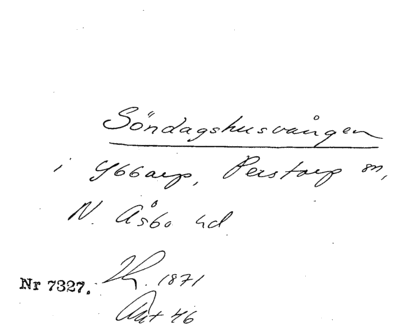 Söndagshusvången
i Ybbarp, Perstorp sn,
N. Åsbo hd
Nr 7327. 1871
Akt 46